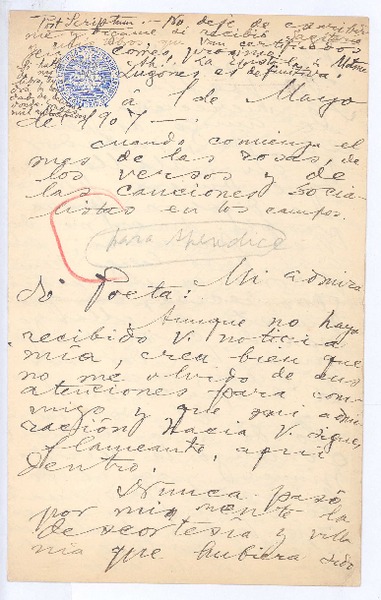 Post Scriptum.— No deje de escribir
me y dígame si recibió
van certificados
correo próximo.
Lugones es definitiva
á 1 de Mayo
de 1907—
cuando comienza el
mes de las rosas, de
los versos y de
las canciones socia-
listas en los campos.
para apendice
Mi admira
do Poeta:
Aunque no haya
recibido V. noticia
mía, crea bien que
no me olvido de sus
atenciones para con-
migo y que mi admi
ración hacia V. sigue,
flameante, aquí
dentro.
Nunca pasó
por mi mente la
descortesía y villa
nía que hubiera sido